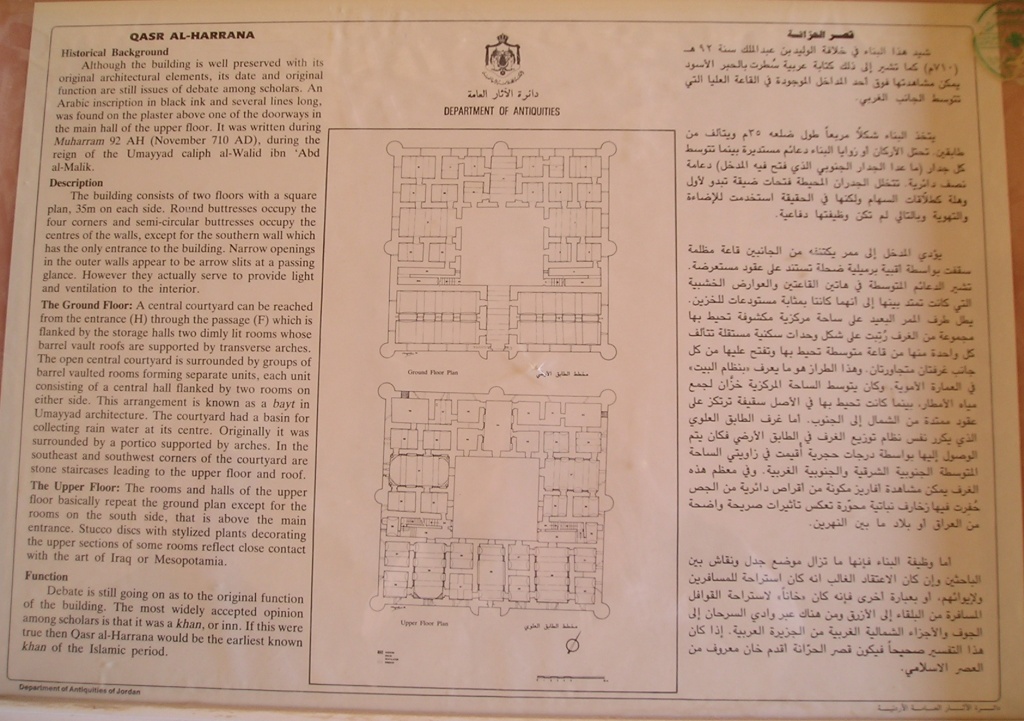 QASR AL-HARRANA
Historical Background
Although the building is well preserved with its
original architectural elements, its date and original
function are still issues of debate among scholars. An
Arabic inscription in black ink and several lines long,
was found on the plaster above one of the doorways in
the main hall of the upper floor. It was written during
Muharram 92 AH (November 710 AD), during the
reign of the Umayyad caliph al-Walid ibn ‘Abd
al-Malik.
Description
The building consists of two floors with a square
plan, 35m on each side. Round buttresses occupy the
four corners and semi-circular buttresses occupy the
centres of the walls, except for the southern wall which
has the only entrance to the building. Narrow openings
in the outer walls appear to be arrow slits at a passing
glance. However they actually serve to provide light
and ventilation to the interior.
The Ground Floor: A central courtyard can be reached
from the entrance (H) through the passage (F) which is
flanked by the storage halls two dimly lit rooms whose
barrel vault roofs are supported by transverse arches.
The open central courtyard is surrounded by groups of
barrel vaulted rooms forming separate units, each unit
consisting of a central hall flanked by two rooms on
either side. This arrangement is known as a bayt in
Umayyad architecture. The courtyard had a basin for
collecting rain water at its centre. Originally it was
surrounded by a portico supported by arches. In the
southeast and southwest corners of the courtyard are
stone staircases leading to the upper floor and roof.
The Upper Floor: The rooms and halls of the upper
floor basically repeat the ground plan except for the
rooms on the south side, that is above the main
entrance. Stucco discs with stylized plants decorating
the upper sections of some rooms reflect close contact
with the art of Iraq or Mesopotamia.
Function
Debate is still going on as to the original function
of the building. The most widely accepted opinion
among scholars is that it was a khan, or inn. If this were
true then Qasr al-Harrana would be the earliest known
khan of the Islamic period.
Department of Antiquities of Jordan
دائرة الآثار العامة
DEPARTMENT OF ANTIQUITIES
Ground Floor Plan
مخطط الطابق الأرضي
Upper Floor Plan
مخطط الطابق العلوي
قصر الحرانة
شيد هذا البناء في خلافة الوليد بن عبد الملك سنة ٩٢ هـ
(٧١٠م) كما تشير إلى ذلك كتابة عربية سُطرت بالحبر الأسود
يمكن مشاهدتها فوق أحد المداخل الموجودة في القاعة العليا التي
تتوسط الجانب الغربي.
يتخذ البناء شكلاً مربعاً طول ضلعه ٣٥م ويتألف من
طابقين. تحتل الأركان أو زوايا البناء دعائم مستديرة بينما تتوسط
كل جدار (ما عدا الجدار الجنوبي الذي فتح فيه المدخل) دعامة
نصف دائرية. تتخلل الجدران المحيطة فتحات ضيقة تبدو لأول
وهلة كطلاقات السهام ولكنها في الحقيقة استخدمت للإضاءة
والتهوية وبالتالي لم تكن وظيفتها دفاعية.
يؤدي المدخل إلى ممر يكتنفه من الجانبين قاعة مظلمة
سقفت بواسطة أقبية برميلية ضحلة تستند على عقود مستعرضة.
تشير الدعائم المتوسطة في هاتين القاعتين والعوارض الخشبية
التي كانت تمتد بينها إلى أنهما كانتا بمثابة مستودعات للخزين.
يطل طرف الممر البعيد على ساحة مركزية مكشوفة تحيط بها
مجموعة من الغرف رُتبت على شكل وحدات سكنية مستقلة تتألف
كل واحدة منها من قاعة متوسطة تحيط بها وتفتح عليها من كل
جانب غرفتان متجاورتان. وهذا الطراز هو ما يعرف «بنظام البيت»
في العمارة الأموية. وكان يتوسط الساحة المركزية خزّان لجمع
مياه الأمطار، بينما كانت تحيط بها في الأصل سقيفة ترتكز على
عقود ممتدة من الشمال إلى الجنوب. أما غرف الطابق العلوي
الذي يكرر نفس نظام توزيع الغرف في الطابق الأرضي فكان يتم
الوصول إليها بواسطة درجات حجرية أُقيمت في زاويتي الساحة
المتوسطة الجنوبية الشرقية والجنوبية الغربية. وفي معظم هذه
الغرف يمكن مشاهدة أفاريز مكونة من أقراص دائرية من الجص
حُفرت فيها زخارف نباتية محوّرة تعكس تأثيرات صريحة واضحة
من العراق أو بلاد ما بين النهرين.
أما وظيفة البناء فإنها ما تزال موضع جدل ونقاش بين
الباحثين وإن كان الاعتقاد الغالب انه كان استراحة للمسافرين
ولإيوائهم، أو بعبارة أخرى فإنه كان «خاناً» لاستراحة القوافل
المسافرة من البلقاء إلى الأزرق ومن هناك عبر وادي السرحان إلى
الجوف والأجزاء الشمالية الغربية من الجزيرة العربية. إذا كان
هذا التفسير صحيحاً فيكون قصر الحرّانة أقدم خان معروف من
العصر الاسلامي.
دائرة الآثار العامة الأردنية